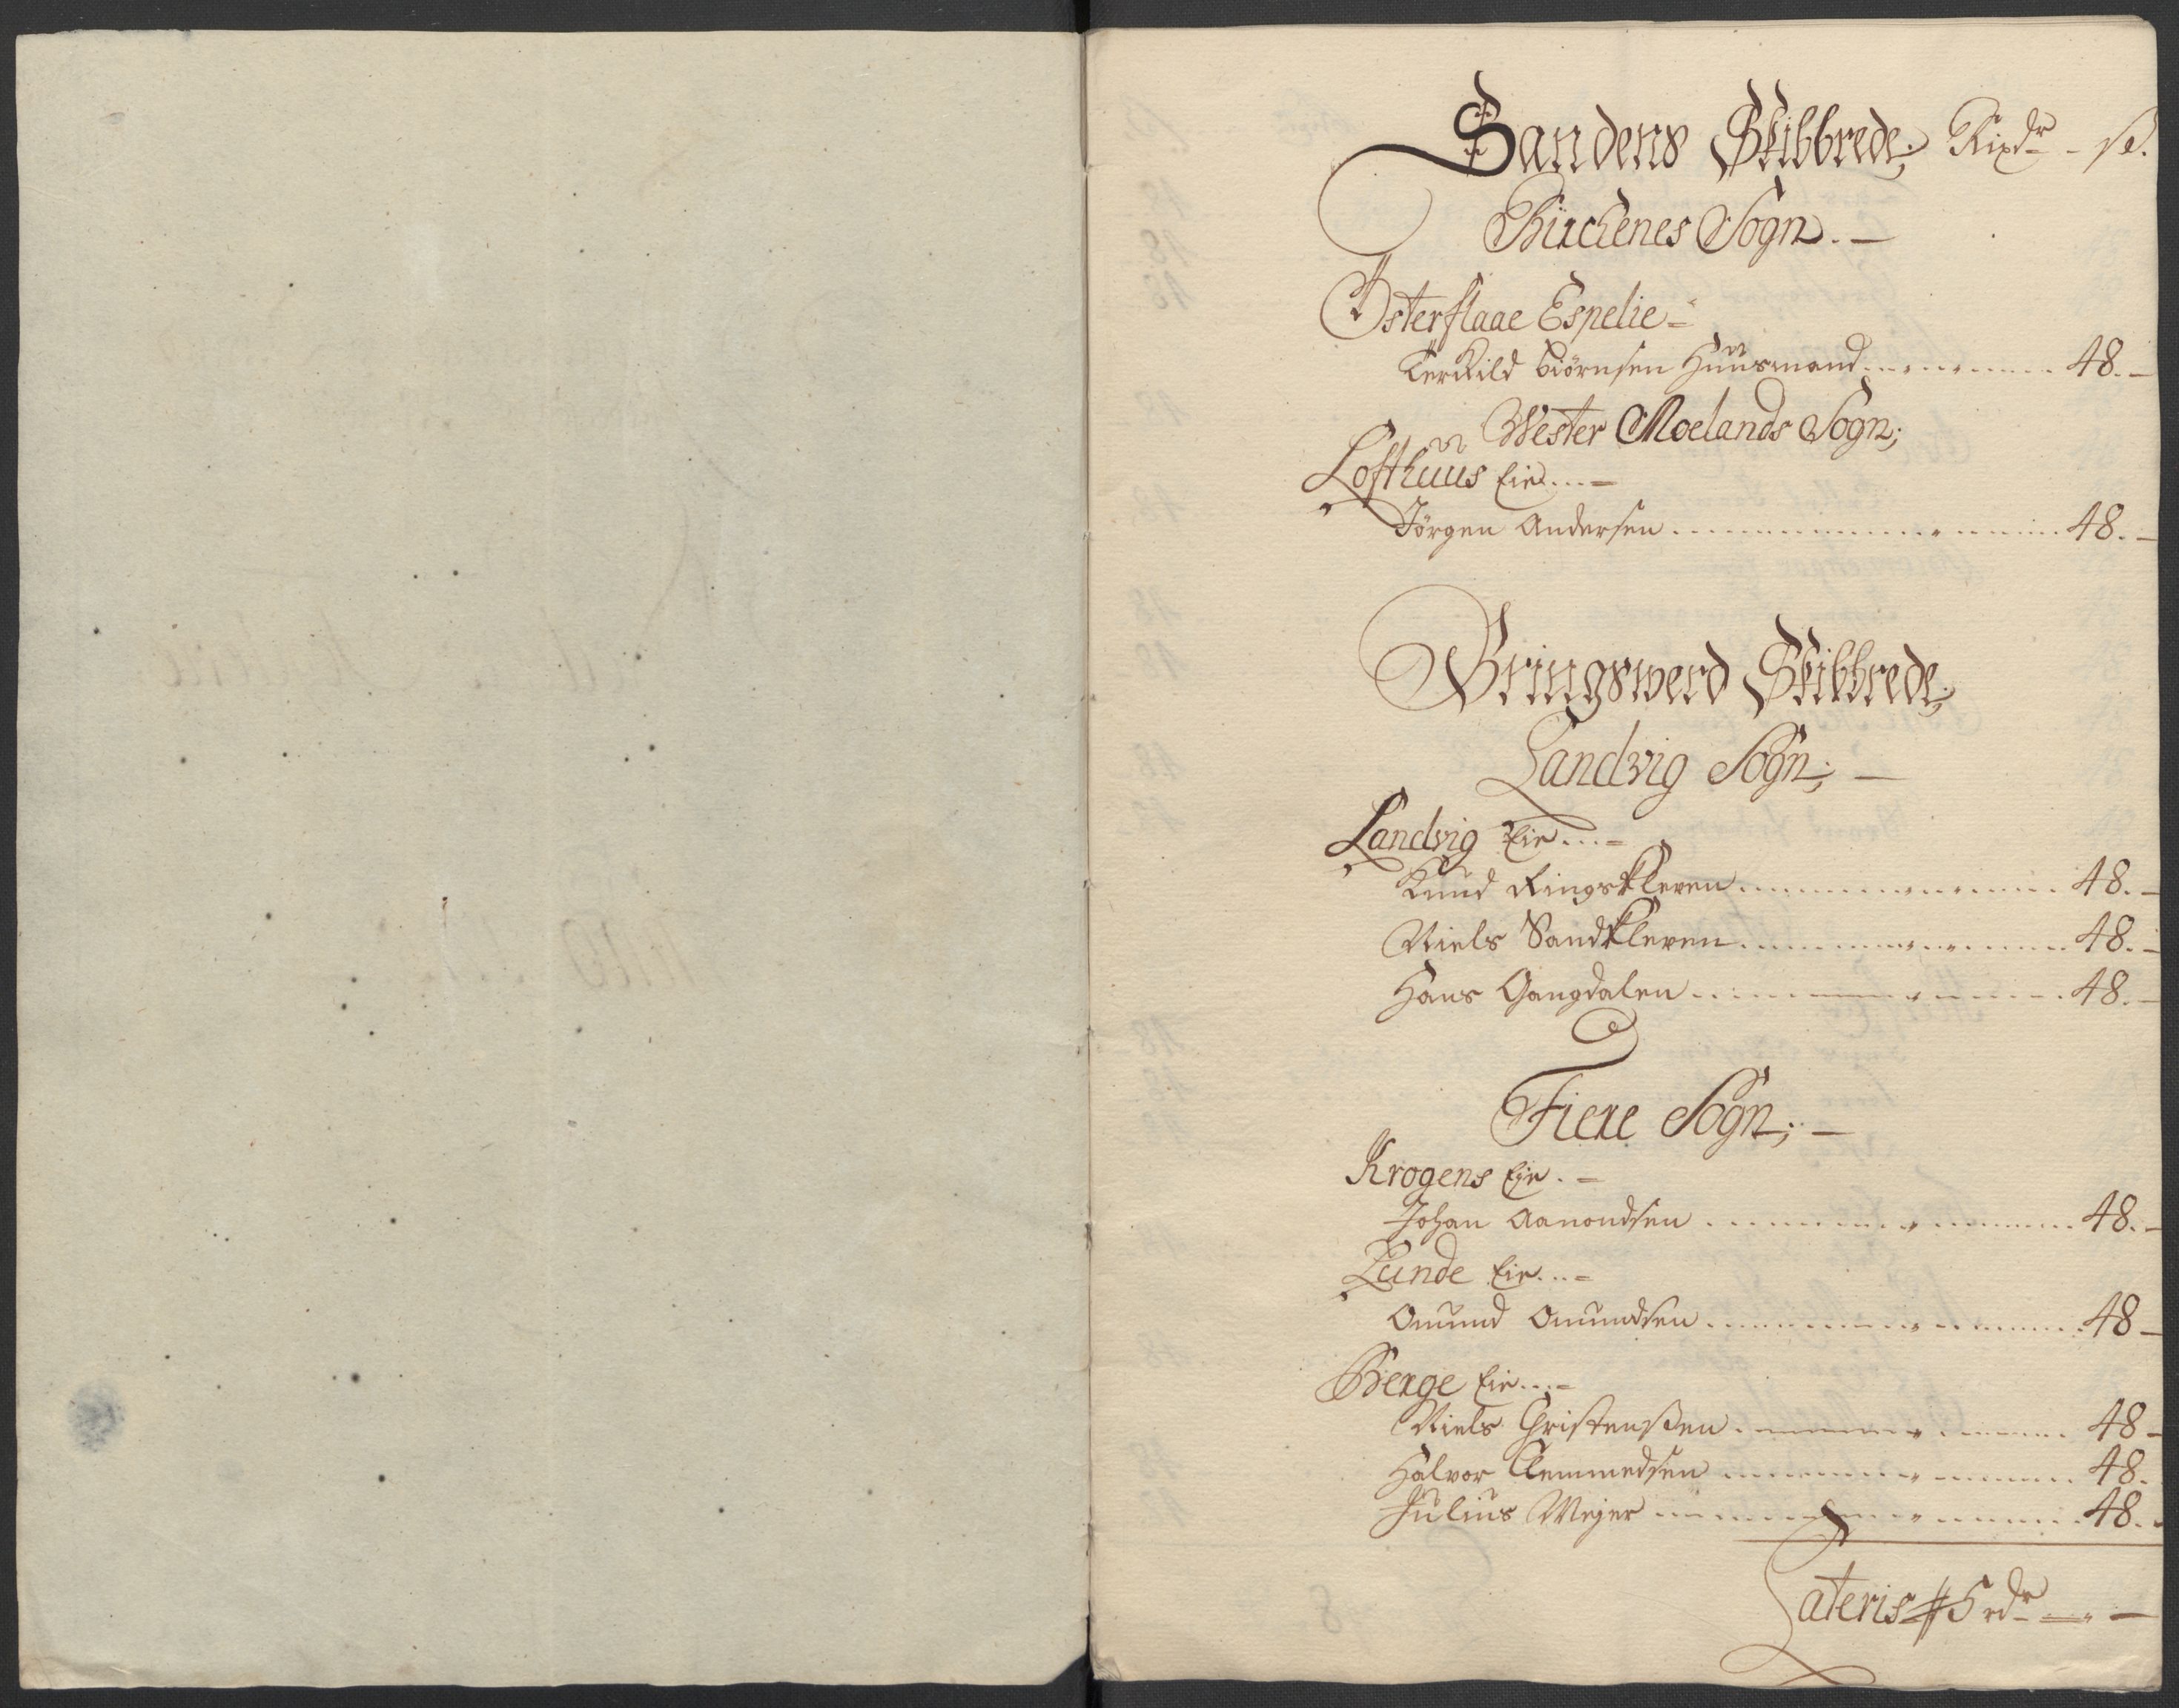 Sandens Skibbrede; Rixdr - ß.
Birchenes Sogn. —
Østerflaae Espelie =
Terkild Biørnsen Huusmand ........ 48. —
Wester Moelands Sogn;
Lofthuus Eie... =
Jørgen Andersen ........ 48. —
Bringswerd Skibbrede;
Landvig Sogn; —
Landvig Eie... =
Knud Ringskleven ........ 48. —
Niels Sandkleven ........ 48. —
Hans Gangdalen ........ 48. —
Fiere Sogn; —
Krogens Eie. =
Johan Aanondsen ........ 48. —
Lunde Eie... =
Omund Omundsen ........ 48 —
Berge Eie... =
Niels Christenßen ........ 48 -
Halvor Clemmedsen ........ 48.
Julius Mejer ........ 48. -
Lateris # 5 rdr — " —